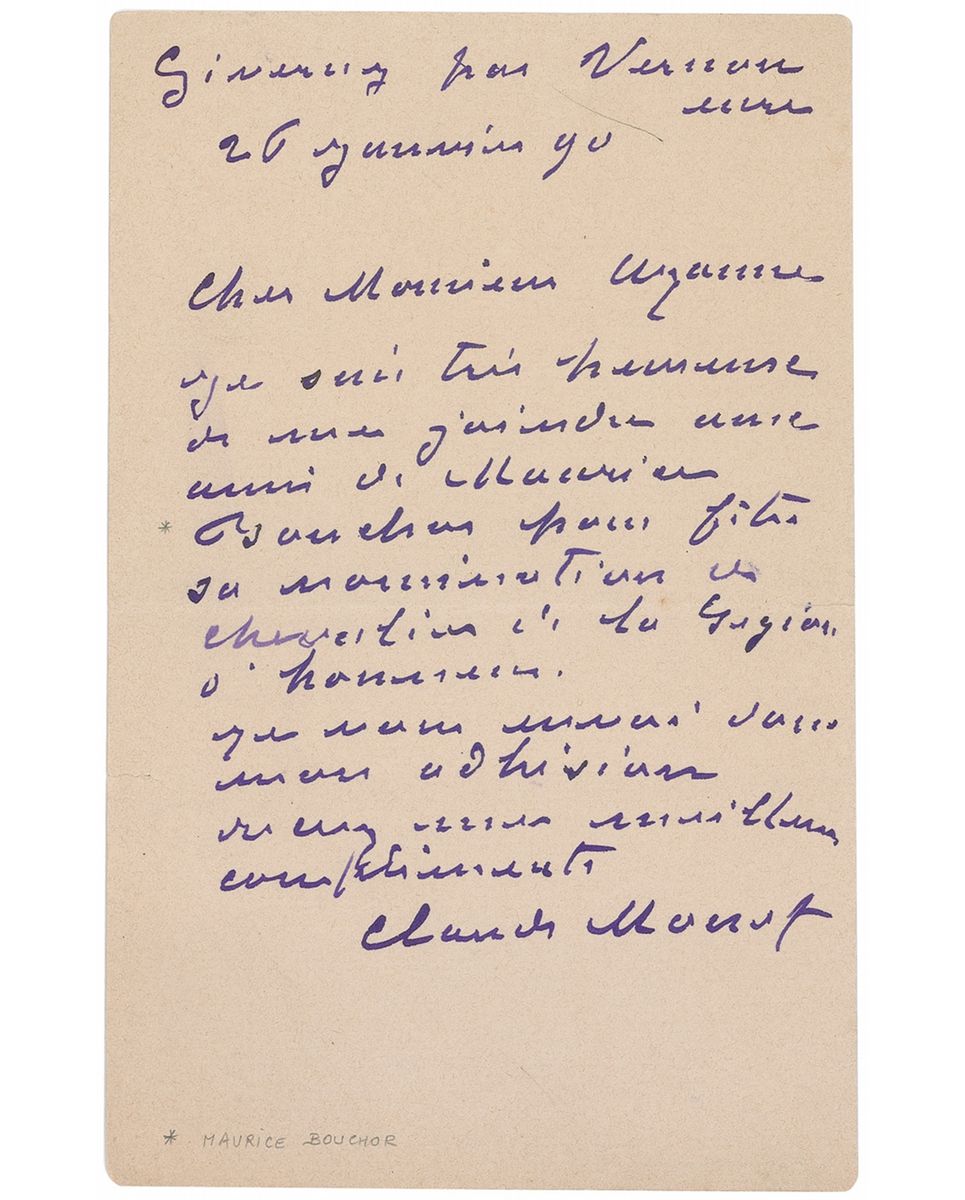 Giverny par Vernon
eure
26 Janvier 90
Cher Monsieur Uzanne
Je suis très heureux
de me joindre aux
amis de Maurice
* Bouchor pour fêter
sa nomination de
chevalier de la Legion
d'honneur.
Je vous envoi donc
mon adhésion
recevez mes meilleurs
compliments
Claude Monet
* MAURICE BOUCHOR